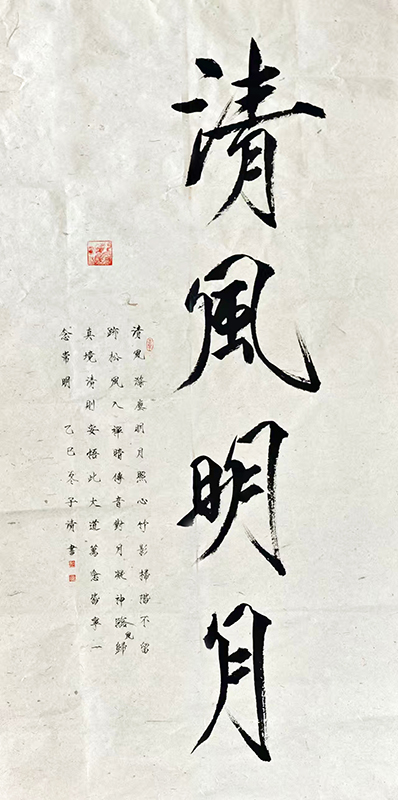 清風明月
清風滌塵明月照心竹影掃階不留
跡松風入禪暗傳音對月凝神豁見歸
真境清則安悟此大道萬皆寧一
念常明 乙巳冬子書